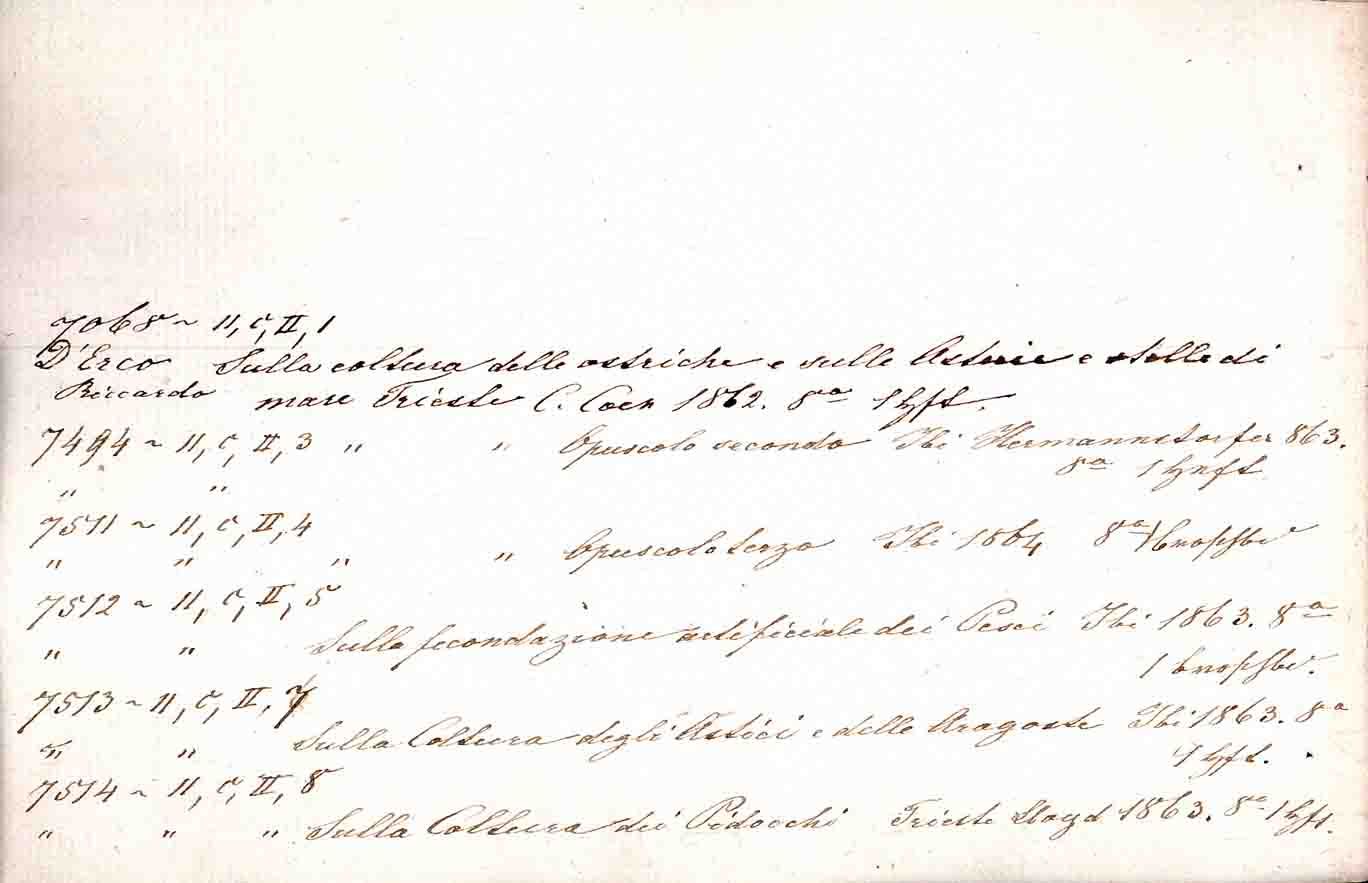 7068 ~ 11, c, II, 1
D'Erco Sulla coltura delle ostriche e sulle Asterie e stelle di
Riccardo mare Trieste C. Coen 1862. 8º 1 Hft.
7494 ~ 11, c, II, 3 " " Opuscolo secondo Ibi Hermannstorfer 863.
" " 8º 1 Hft
7511 ~ 11, c, II, 4
" " " " Opuscolo terzo Ibi 1864 8º 1 broschbd
7512 ~ 11, c, II, 5
" " Sulla fecondazione artificiale dei Pesci Ibi 1863. 8º
1 broschbd.
7513 ~ 11, c, II, 7
" " Sulla Coltura degli Astici e delle Aragoste Ibi 1863. 8º
1 Hft.
7514 ~ 11, c, II, 8
" " " Sulla Coltura dei Pidocchi Trieste Lloyd 1863. 8º 1 Hft.